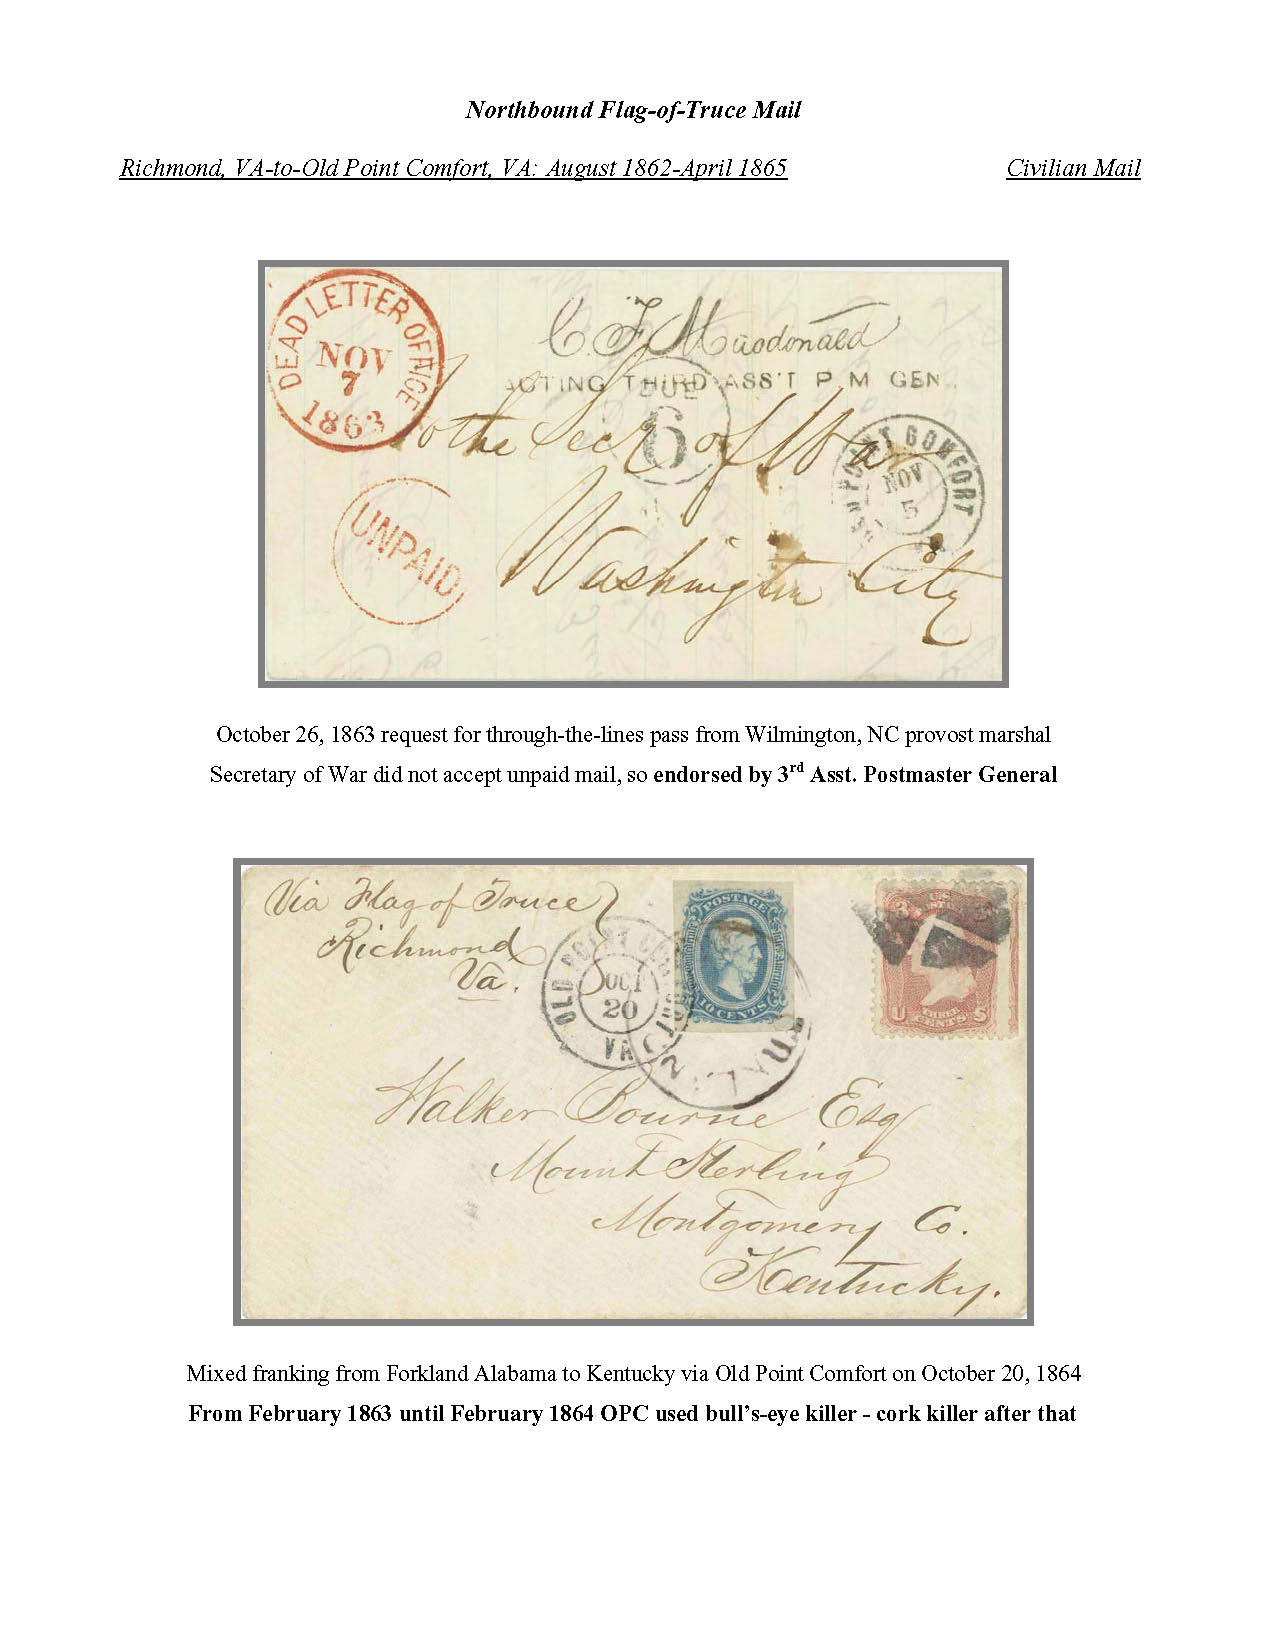 Northbound Flag-of-Truce Mail
Richmond, VA-to-Old Point Comfort, VA: August 1862-April 1865 Civilian Mail
DEAD LETTER OFFICE
NOV
7
1863
C. F. Macdonald
ACTING THIRD ASS'T P M GEN.
DUE
6
To the Secy of War
POINT COMFORT
NOV
5
UNPAID
Washington City
October 26, 1863 request for through-the-lines pass from Wilmington, NC provost marshal
Secretary of War did not accept unpaid mail, so endorsed by 3rd Asst. Postmaster General
Via Flag of Truce
Richmond
Va.
OLD POINT COMFORT
OCT
20
VA
POSTAGE
10 CENTS
3
U S
THREE
CENTS
Walker Bourne Esq
Mount Sterling
Montgomery Co.
Kentucky.
Mixed franking from Forkland Alabama to Kentucky via Old Point Comfort on October 20, 1864
From February 1863 until February 1864 OPC used bull's-eye killer - cork killer after that